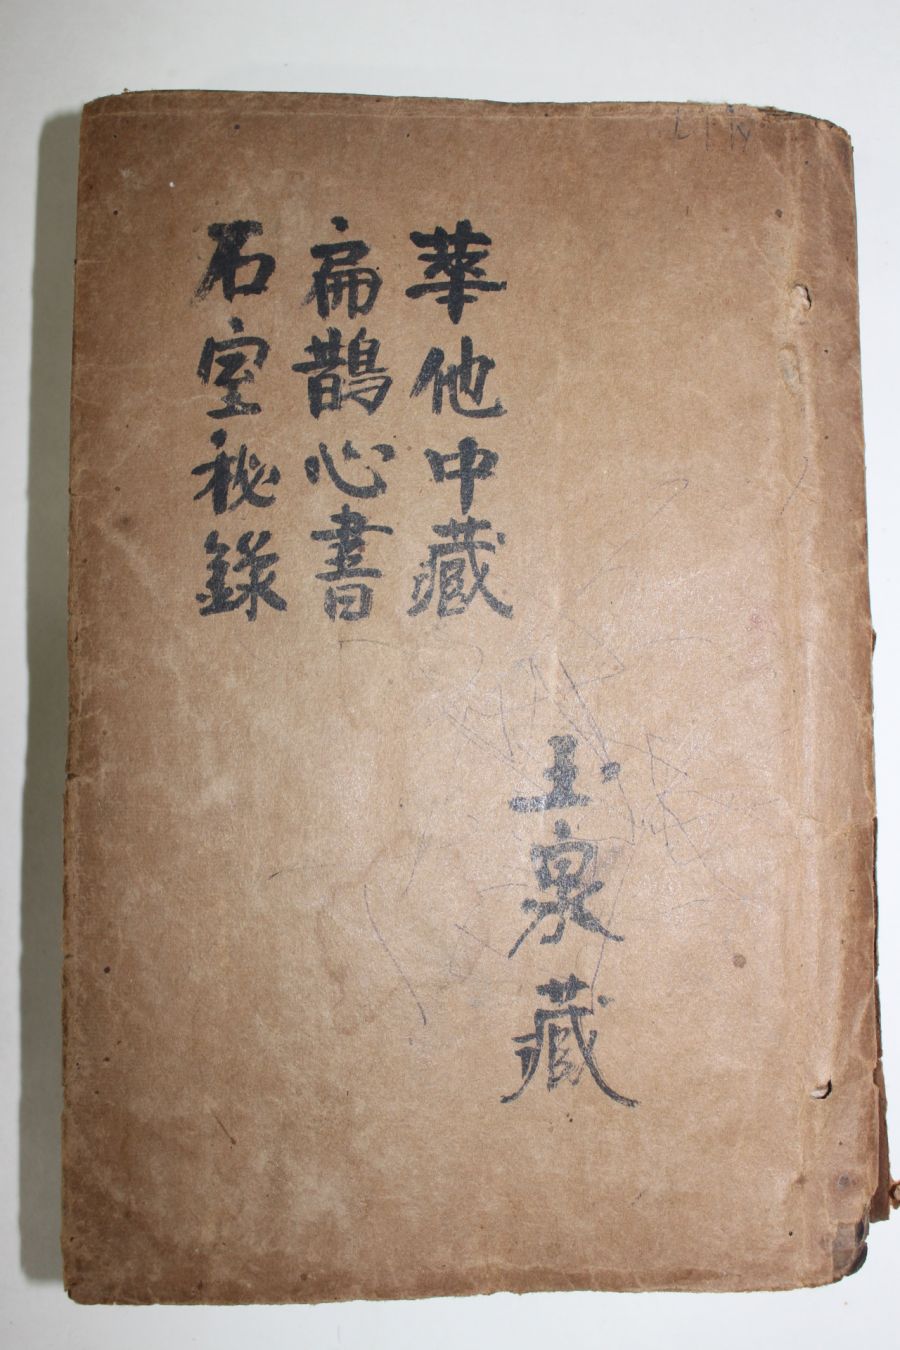 華他中藏
扁鵲心書
石室秘錄
玉泉藏